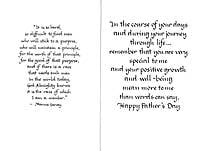 "It is so hard,
so difficult to find men
who will stick to a purpose,
who will maintain a principle,
for the worth of that principle,
for the good of that purpose,
and if there is a race
that needs such men
in the world today,
God Almighty knows
it is the race of which
I am a member."
- Marcus Garvey
In the course of your days
and during your journey
through life...
remember that you are very
special to me
and your positive growth
and well-being
mean more to me
than words can say.
Happy Father's Day